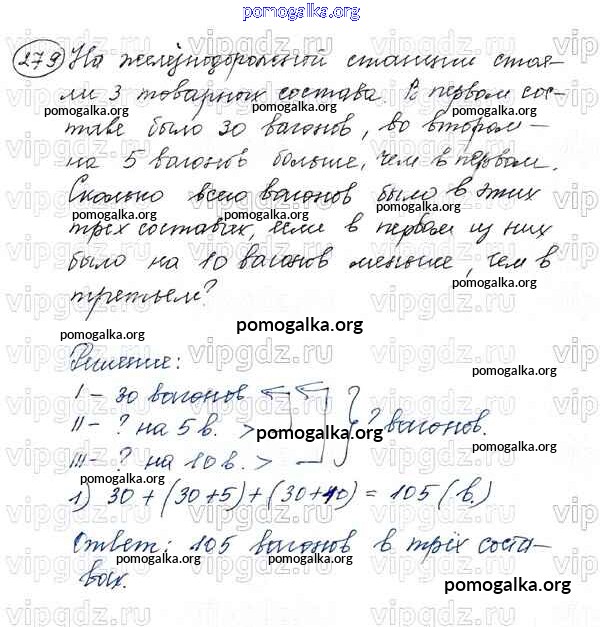 pomogalka.org
279) На железнодорожной станции стоя-
ли 3 товарных состава. В первом сос-
таве было 30 вагонов, во втором -
на 5 вагонов больше, чем в первом.
Сколько всего вагонов было в этих
трёх составах, если в первом из них
было на 10 вагонов меньше, чем в
третьем?
pomogalka.org
Решение:
I - 30 вагонов
II - ? на 5 в. >
III - ? на 10 в. >
? вагонов.
1) 30 + (30+5) + (30+10) = 105 (в.)
Ответ: 105 вагонов в трёх соста-
вах.
pomogalka.org